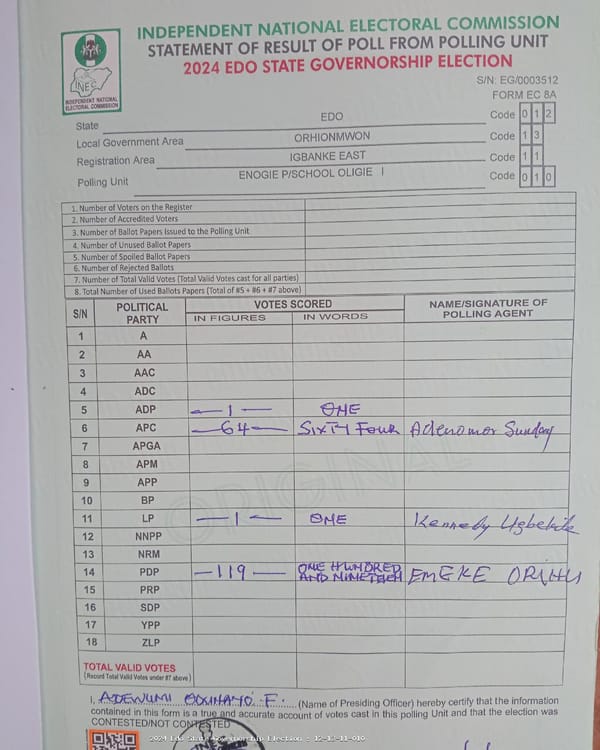 INDEPENDENT NATIONAL ELECTORAL COMMISSION
STATEMENT OF RESULT OF POLL FROM POLLING UNIT
2024 EDO STATE GOVERNORSHIP ELECTION
INEC
INDEPENDENT NATIONAL
ELECTORAL COMMISSION
S/N: EG/0003512
FORM EC 8A
State EDO Code 0 1 2
Local Government Area ORHIONMWON Code 1 3
Registration Area IGBANKE EAST Code 1 1
Polling Unit ENOGIE P/SCHOOL OLIGIE I Code 0 1 0
1. Number of Voters on the Register
2. Number of Accredited Voters
3. Number of Ballot Papers Issued to the Polling Unit
4. Number of Unused Ballot Papers
5. Number of Spoiled Ballot Papers
6. Number of Rejected Ballots
7. Number of Total Valid Votes (Total Valid Votes cast for all parties)
8. Total Number of Used Ballots Papers (Total of #5 + #6 + #7 above)
S/N POLITICAL PARTY VOTES SCORED NAME/SIGNATURE OF POLLING AGENT
IN FIGURES IN WORDS
1 A
2 AA
3 AAC
4 ADC
5 ADP —1— ONE
6 APC —64— SIXTY FOUR Adenomor Sunday
7 APGA
8 APM
9 APP
10 BP
11 LP —1— ONE Kennedy
12 NNPP
13 NRM
14 PDP —119— ONE HUNDRED AND NINETEEN EMEKE
15 PRP
16 SDP
17 YPP
18 ZLP
ORIGINAL
TOTAL VALID VOTES
(Record Total Valid Votes under #7 above)
I, ADEWUMI F. (Name of Presiding Officer) hereby certify that the information
contained in this form is a true and accurate account of votes cast in this polling Unit and that the election was
CONTESTED/NOT CONTESTED
2024 Edo State Governorship Election - 12-13-11-010